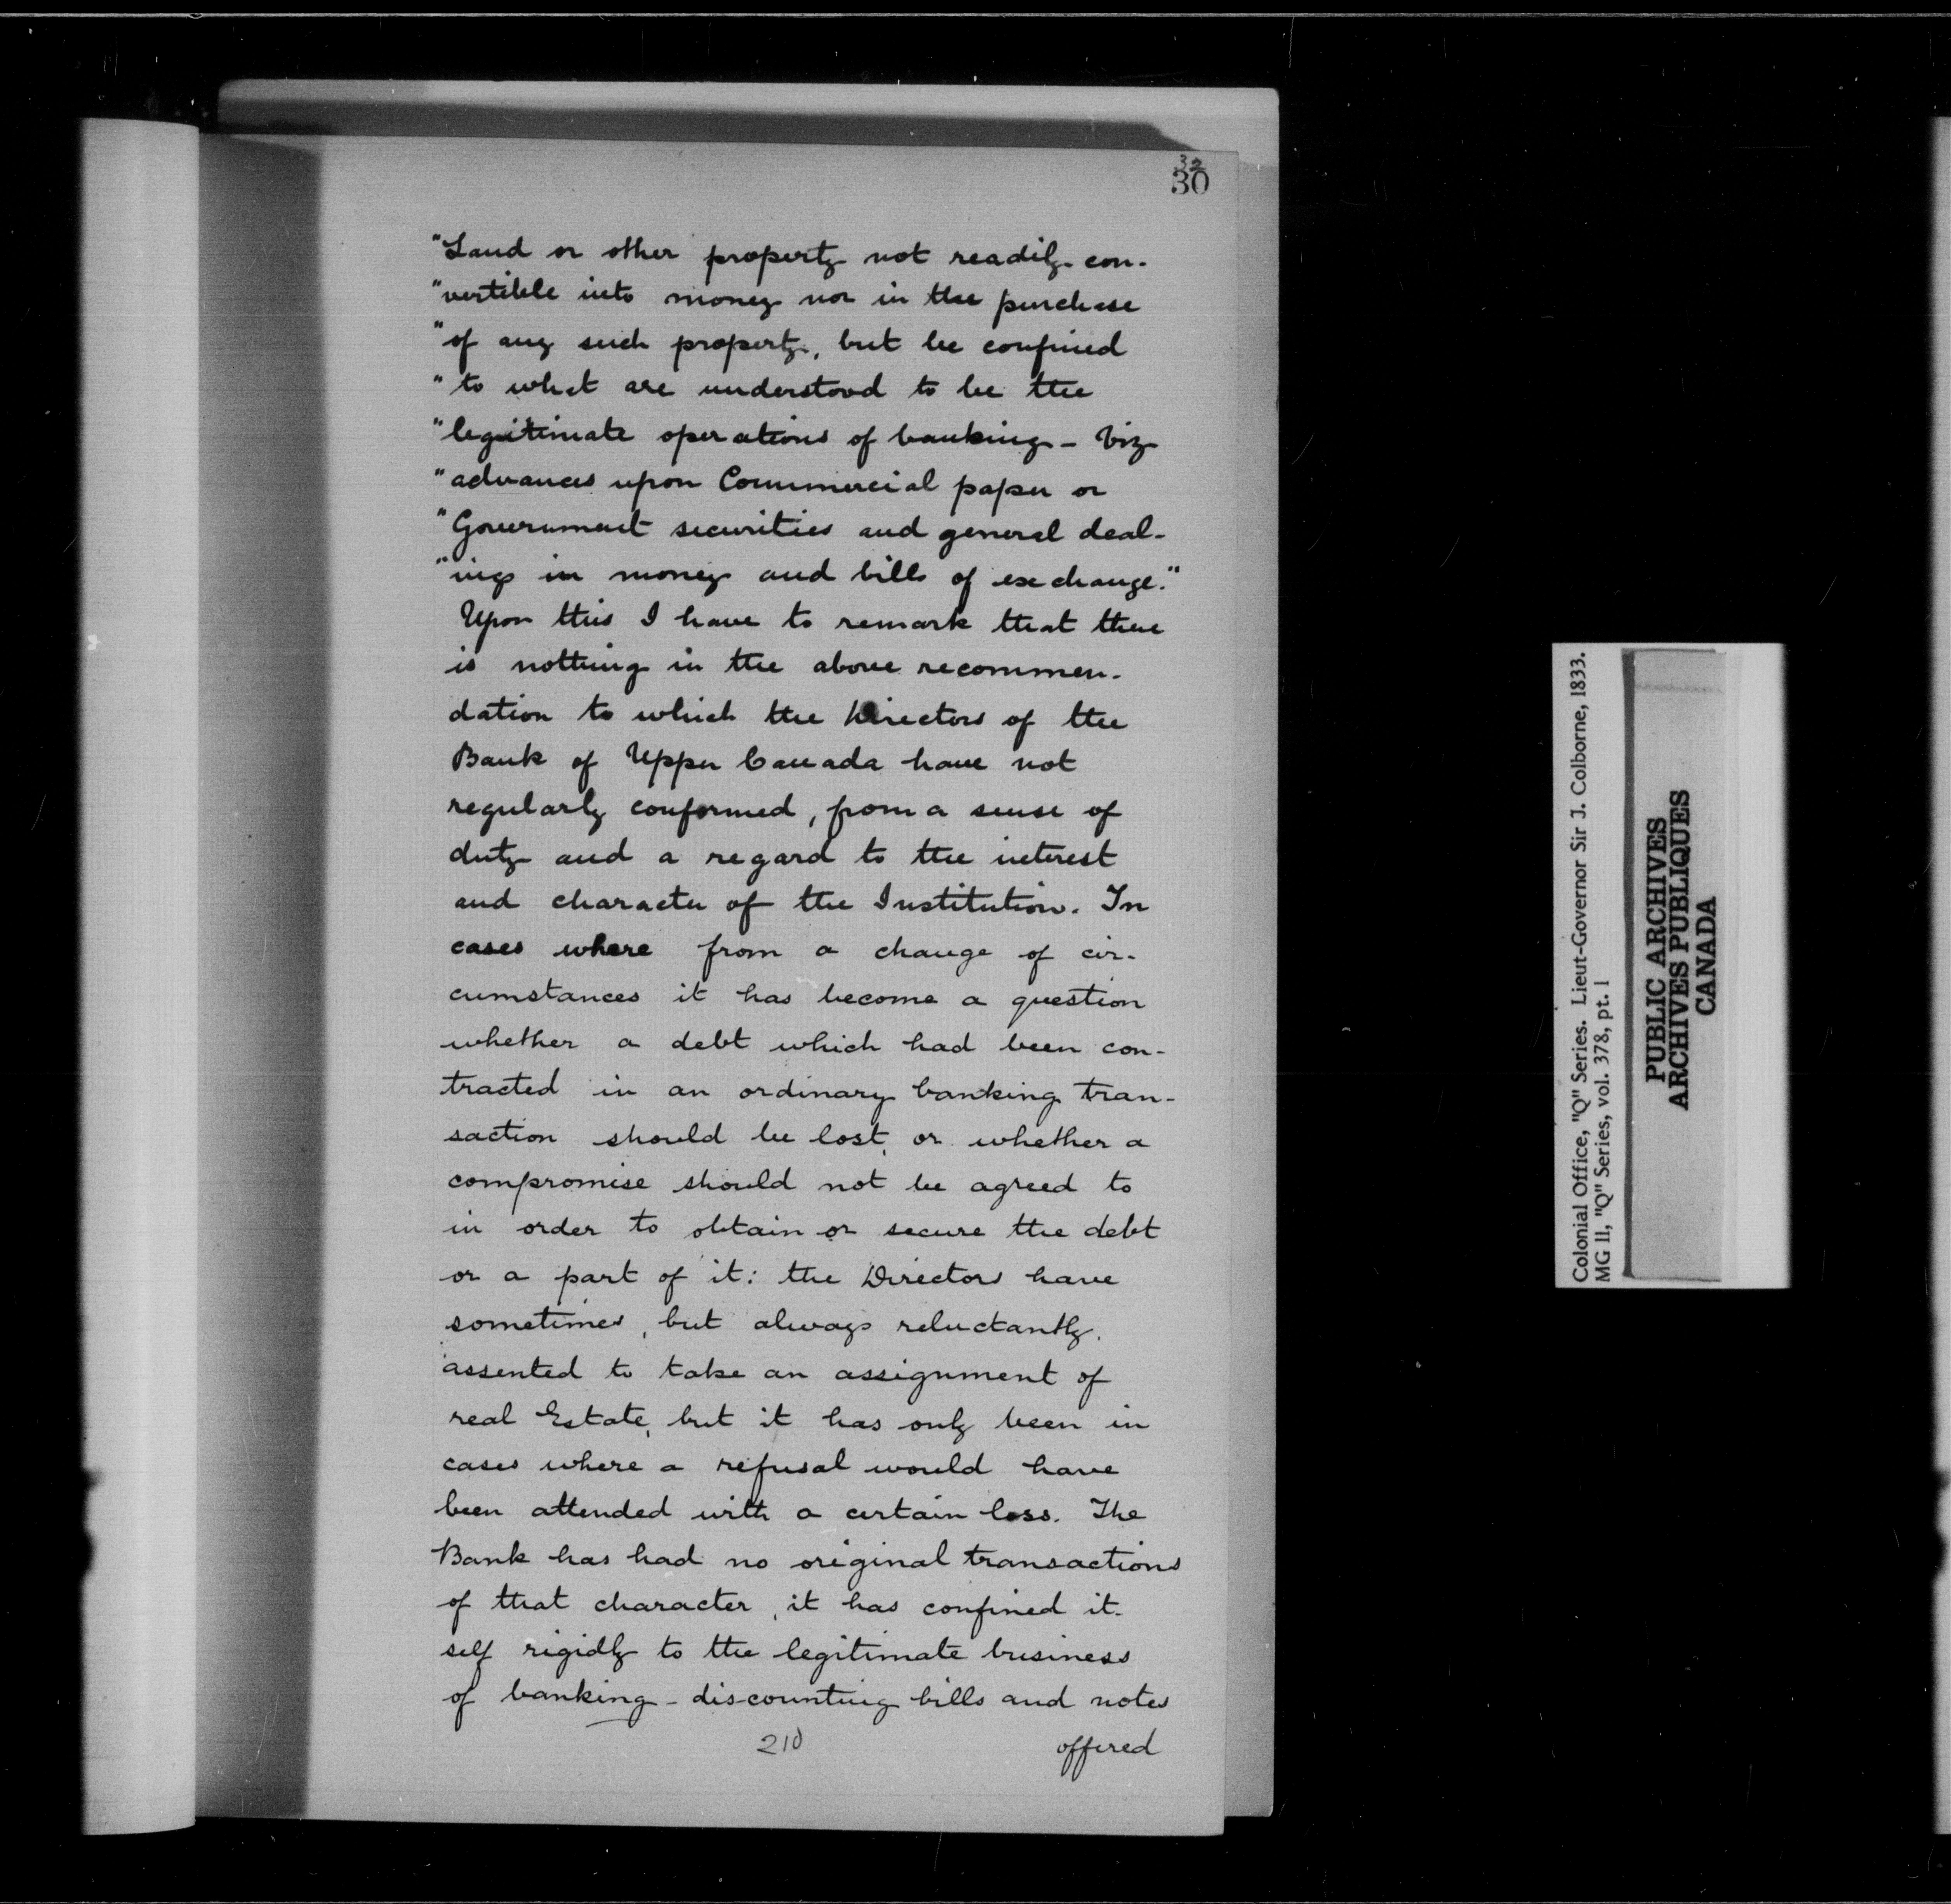 32
30
"Land or other property not readily con-
"vertible into money nor in the purchase
"of any such property, but be confined
"to what are understood to be the
"legitimate operations of banking - viz
"advances upon Commercial paper or
"Government securities and general deal-
"ings in money and bills of exchange."
Upon this I have to remark that there
is nothing in the above recommen-
dation to which the Directors of the
Bank of Upper Canada have not
regularly conformed, from a sense of
duty and a regard to the interest
and character of the Institution. In
cases where from a change of cir-
cumstances it has become a question
whether a debt which had been con-
tracted in an ordinary banking tran-
saction should be lost, or whether a
compromise should not be agreed to
in order to obtain or secure the debt
or a part of it: the Directors have
sometimes, but always reluctantly.
assented to take an assignment of
real Estate, but it has only been in
cases where a refusal would have
been attended with a certain loss. The
Bank has had no original transactions
of that character, it has confined it-
self rigidly to the legitimate business
of banking - discounting bills and notes
210
offered
Colonial Office, "Q" Series. Lieut-Governor Sir J. Colborne, 1833.
MG 11, "Q" Series, vol. 378, pt. 1
PUBLIC ARCHIVES
ARCHIVES PUBLIQUES
CANADA